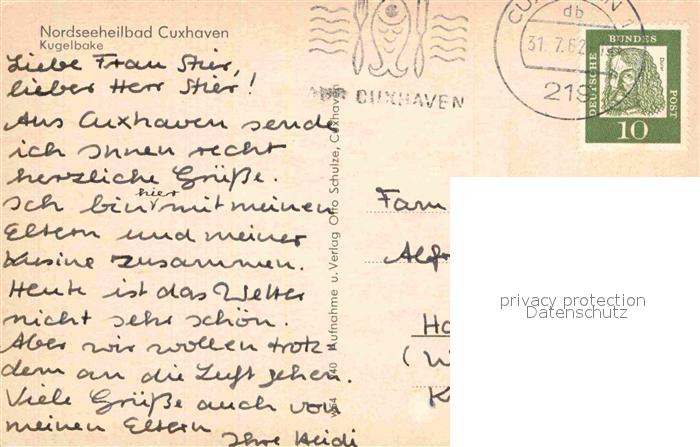 Nordseeheilbad Cuxhaven
Kugelbake
Liebe Frau Stier,
lieber Herr Stier!
Aus Cuxhaven sende
ich Ihnen recht
herzliche Grüße.
Ich bin hier mit meinen
Eltern und meiner
Kusine zusammen.
Heute ist das Wetter
nicht sehr schön.
Aber wir wollen trotz
dem an die Luft gehen.
Viele Grüße auch von
meinen Eltern
Ihre Heidi
Aufnahme u. Verlag Otto Schulze, Cuxhaven
CUXHAVEN
CUXHAVEN 1
db
31.7.62
219
DEUTSCHE BUNDESPOST
Dürer
10
Fam
Alfr
Ha
privacy protection
Datenschutz